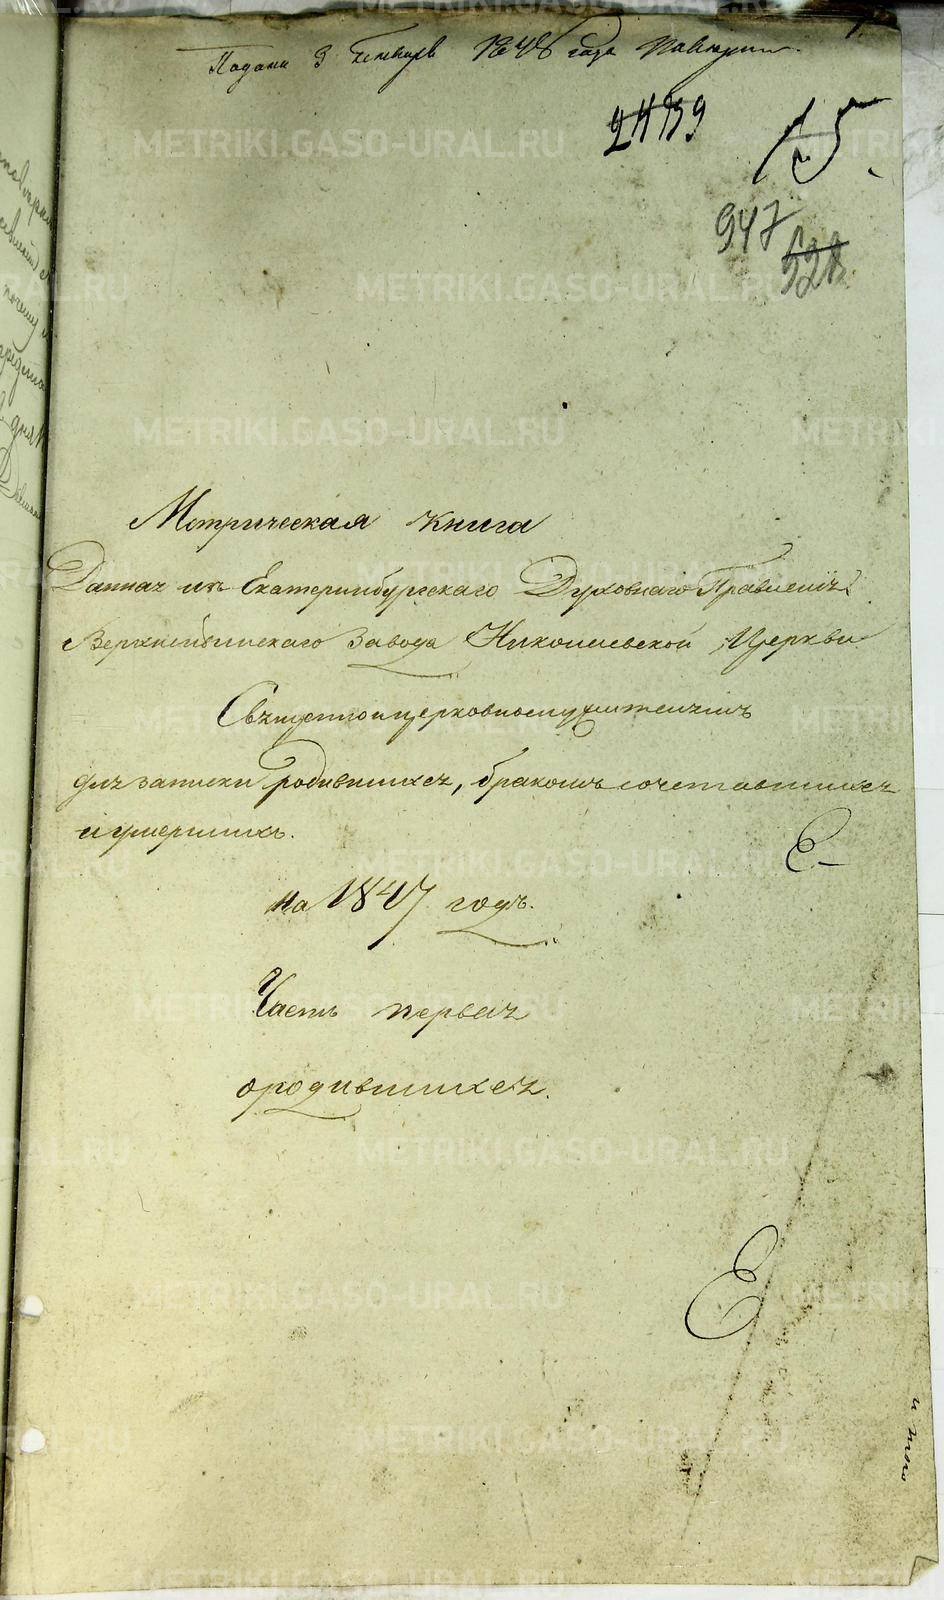 Подана 3 Генваря 1848 года
15
947
528
Метрическая книга
Данная изъ Екатеринбургскаго Духовнаго Правленія
завода Николаевской Церкви
Священноцерковнослужителямъ
для записки родившихся, бракомъ сочетавшихся
и умершихъ.
на 1847 годъ.
Часть первая
о родившихся.
и того
METRIKI.GASO-URAL.RU